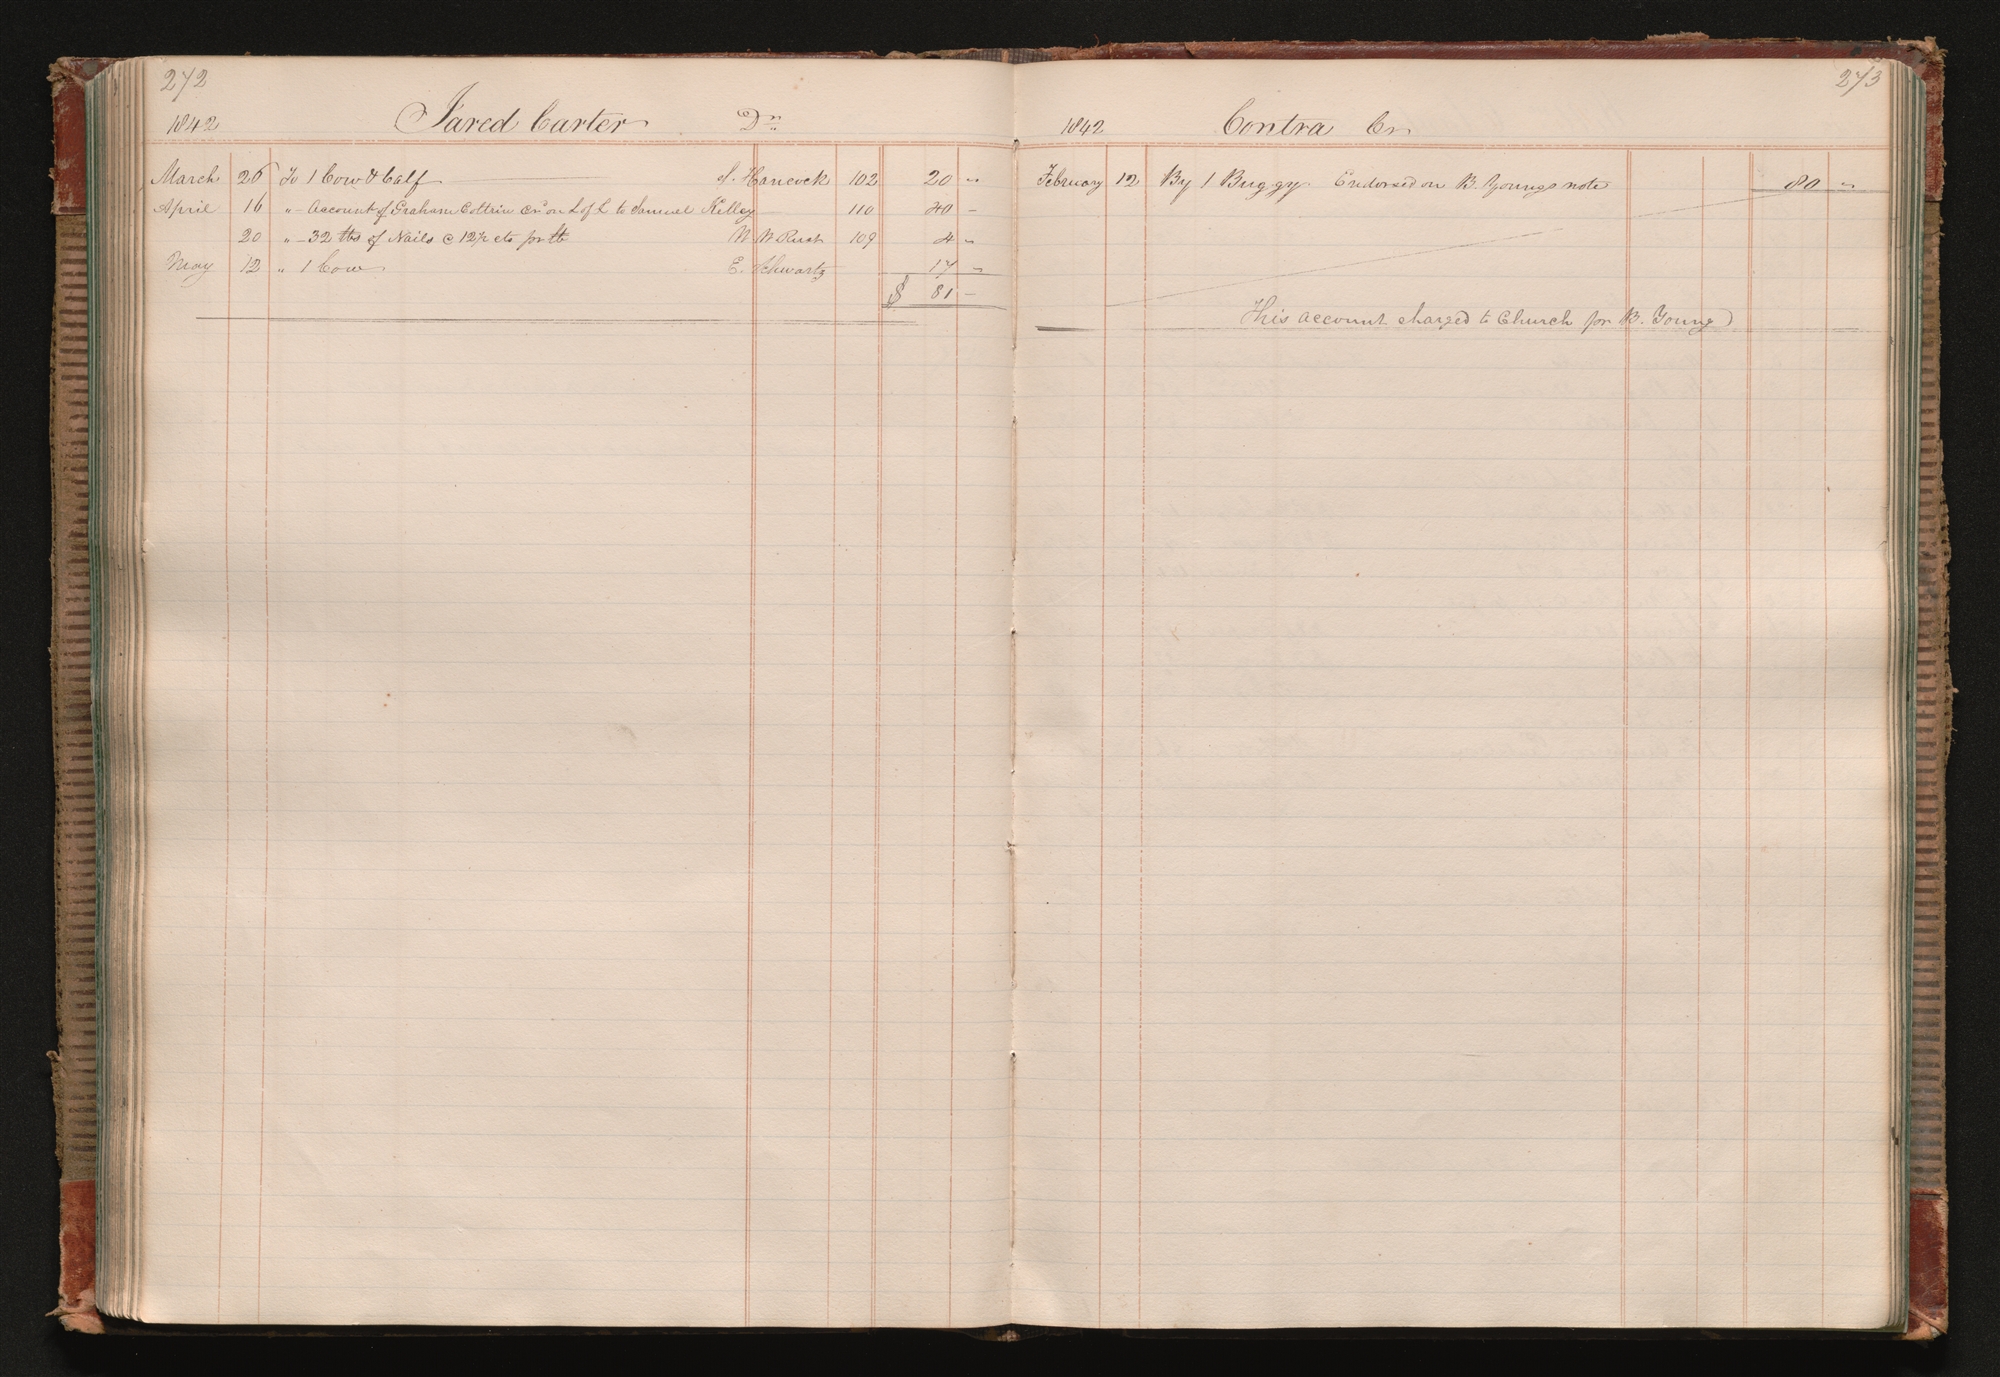 272
1842 Jared Carter Dr
March 26 To 1 Cow & Calf S. Hancock 102 20 "
April 16 " — Account of Graham Coltrin Cr on L of L to Samuel Kelley 110 40 —
20 " — 32 lbs of Nails @ 12½ cts pr lb W W Rust 109 4 "
May 12 " 1 Cow E. Schwartz 17 "
$ 81 —
273
1842 Contra Cr
February 12 By 1 Buggy Endorsed on B. Youngs note 80 "
This account charged to Church for B. Young